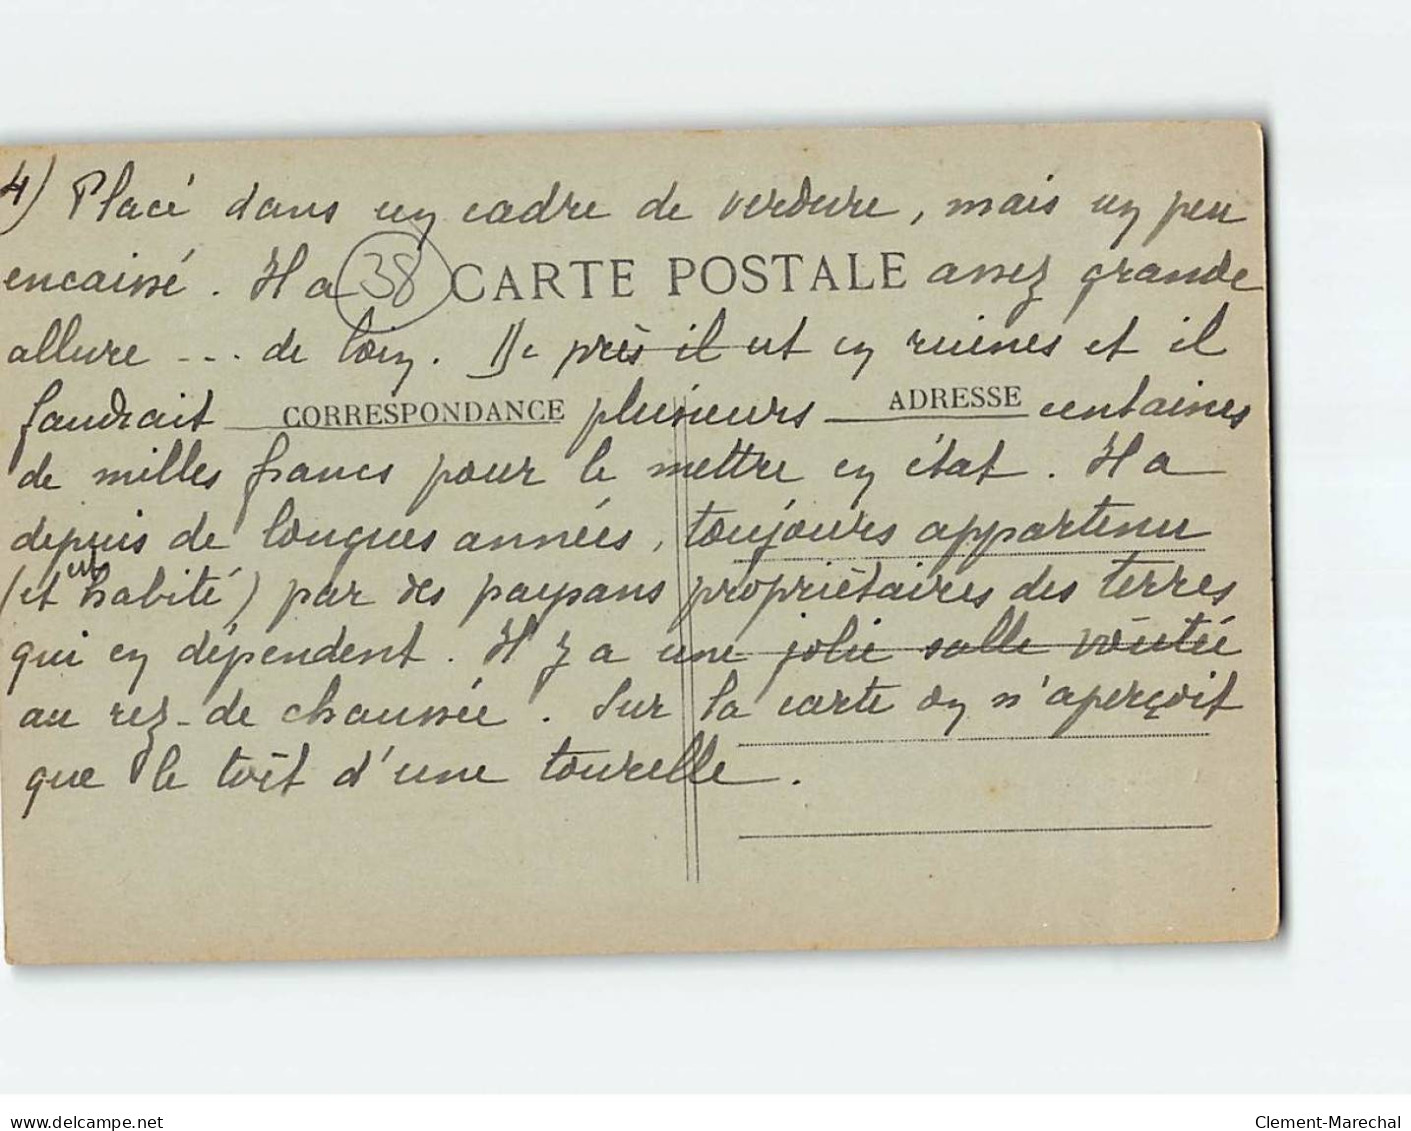 4) Placé dans un cadre de verdure, mais un peu
encaissé. Il a 38 CARTE POSTALE assez grande
allure --. de loin. De près il est en ruines et il
faudrait CORRESPONDANCE plusieurs ADRESSE centaines
de milles francs pour le mettre en état. Il a
depuis de longues années, toujours appartenu
(et est habité) par des paysans propriétaires des terres
qui en dépendent. Il y a une jolie salle voûtée
au rez-de chaussée. Sur la carte on n'aperçoit
que le toît d'une tourelle.
www.delcampe.net
Clement-Marechal